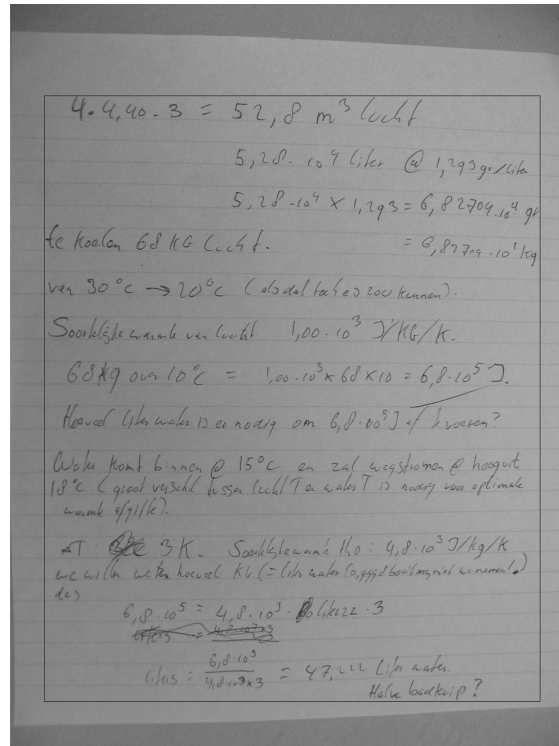 4.4,40.3 = 52,8 m³ lucht
5,28.10⁴ liter @ 1,293 gr/liter
5,28.10⁴ x 1,293 = 6,82704.10⁴ gr
te koelen 68 KG lucht. = 6,82704.10¹ kg
van 30°c → 20°c (als dat toch es zou kunnen).
Soortelijke warmte van lucht 1,00.10³ J/KG/K.
68kg over 10°c = 1,00.10³ x 68 x 10 = 6,8.10⁵ J.
Hoeveel liter water is er nodig om 6,8.10⁵ J af te voeren?
Water komt binnen @ 15°c en zal wegstromen @ hooguit
18°c (groot verschil tussen lucht T en water T is nodig voor optimale
warmte afgifte).
ΔT: 3K. Soortelijke warmte H₂O: 4,8.10³ J/kg/K
we willen weten hoeveel KG (= liter water
dus
6,8.10⁵ = 4,8.10³ . 3
liters = 6,8.10³ / 4,8.10³ x 3 = 47,222 Liter water.
Halve badkuip?